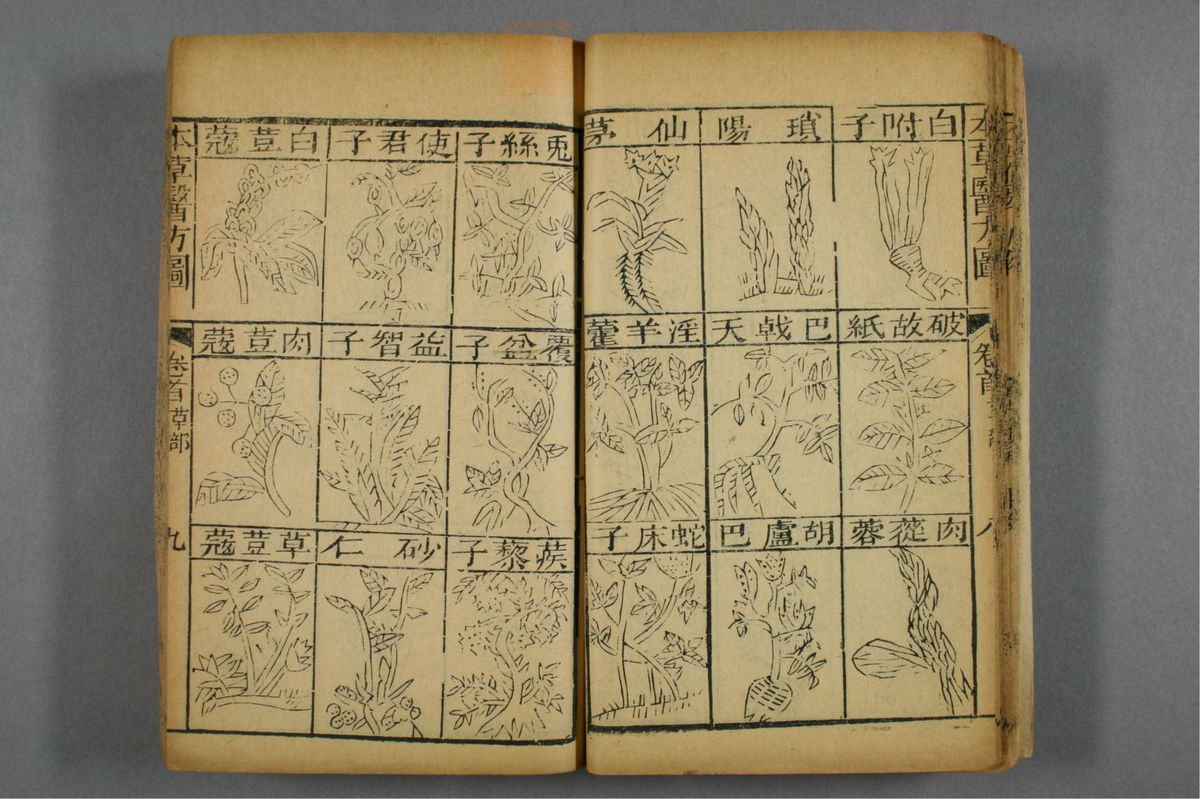 本草醫方圖
卷首
八
白附子
瑣陽
仙茅
破故紙
巴戟天
淫羊藿
肉蓯蓉
胡盧巴
蛇床子
兎絲子
使君子
白荳蔻
覆盆子
益智子
肉荳蔻
蒺藜子
砂仁
草荳蔻
本草醫方圖
卷首 草部
九